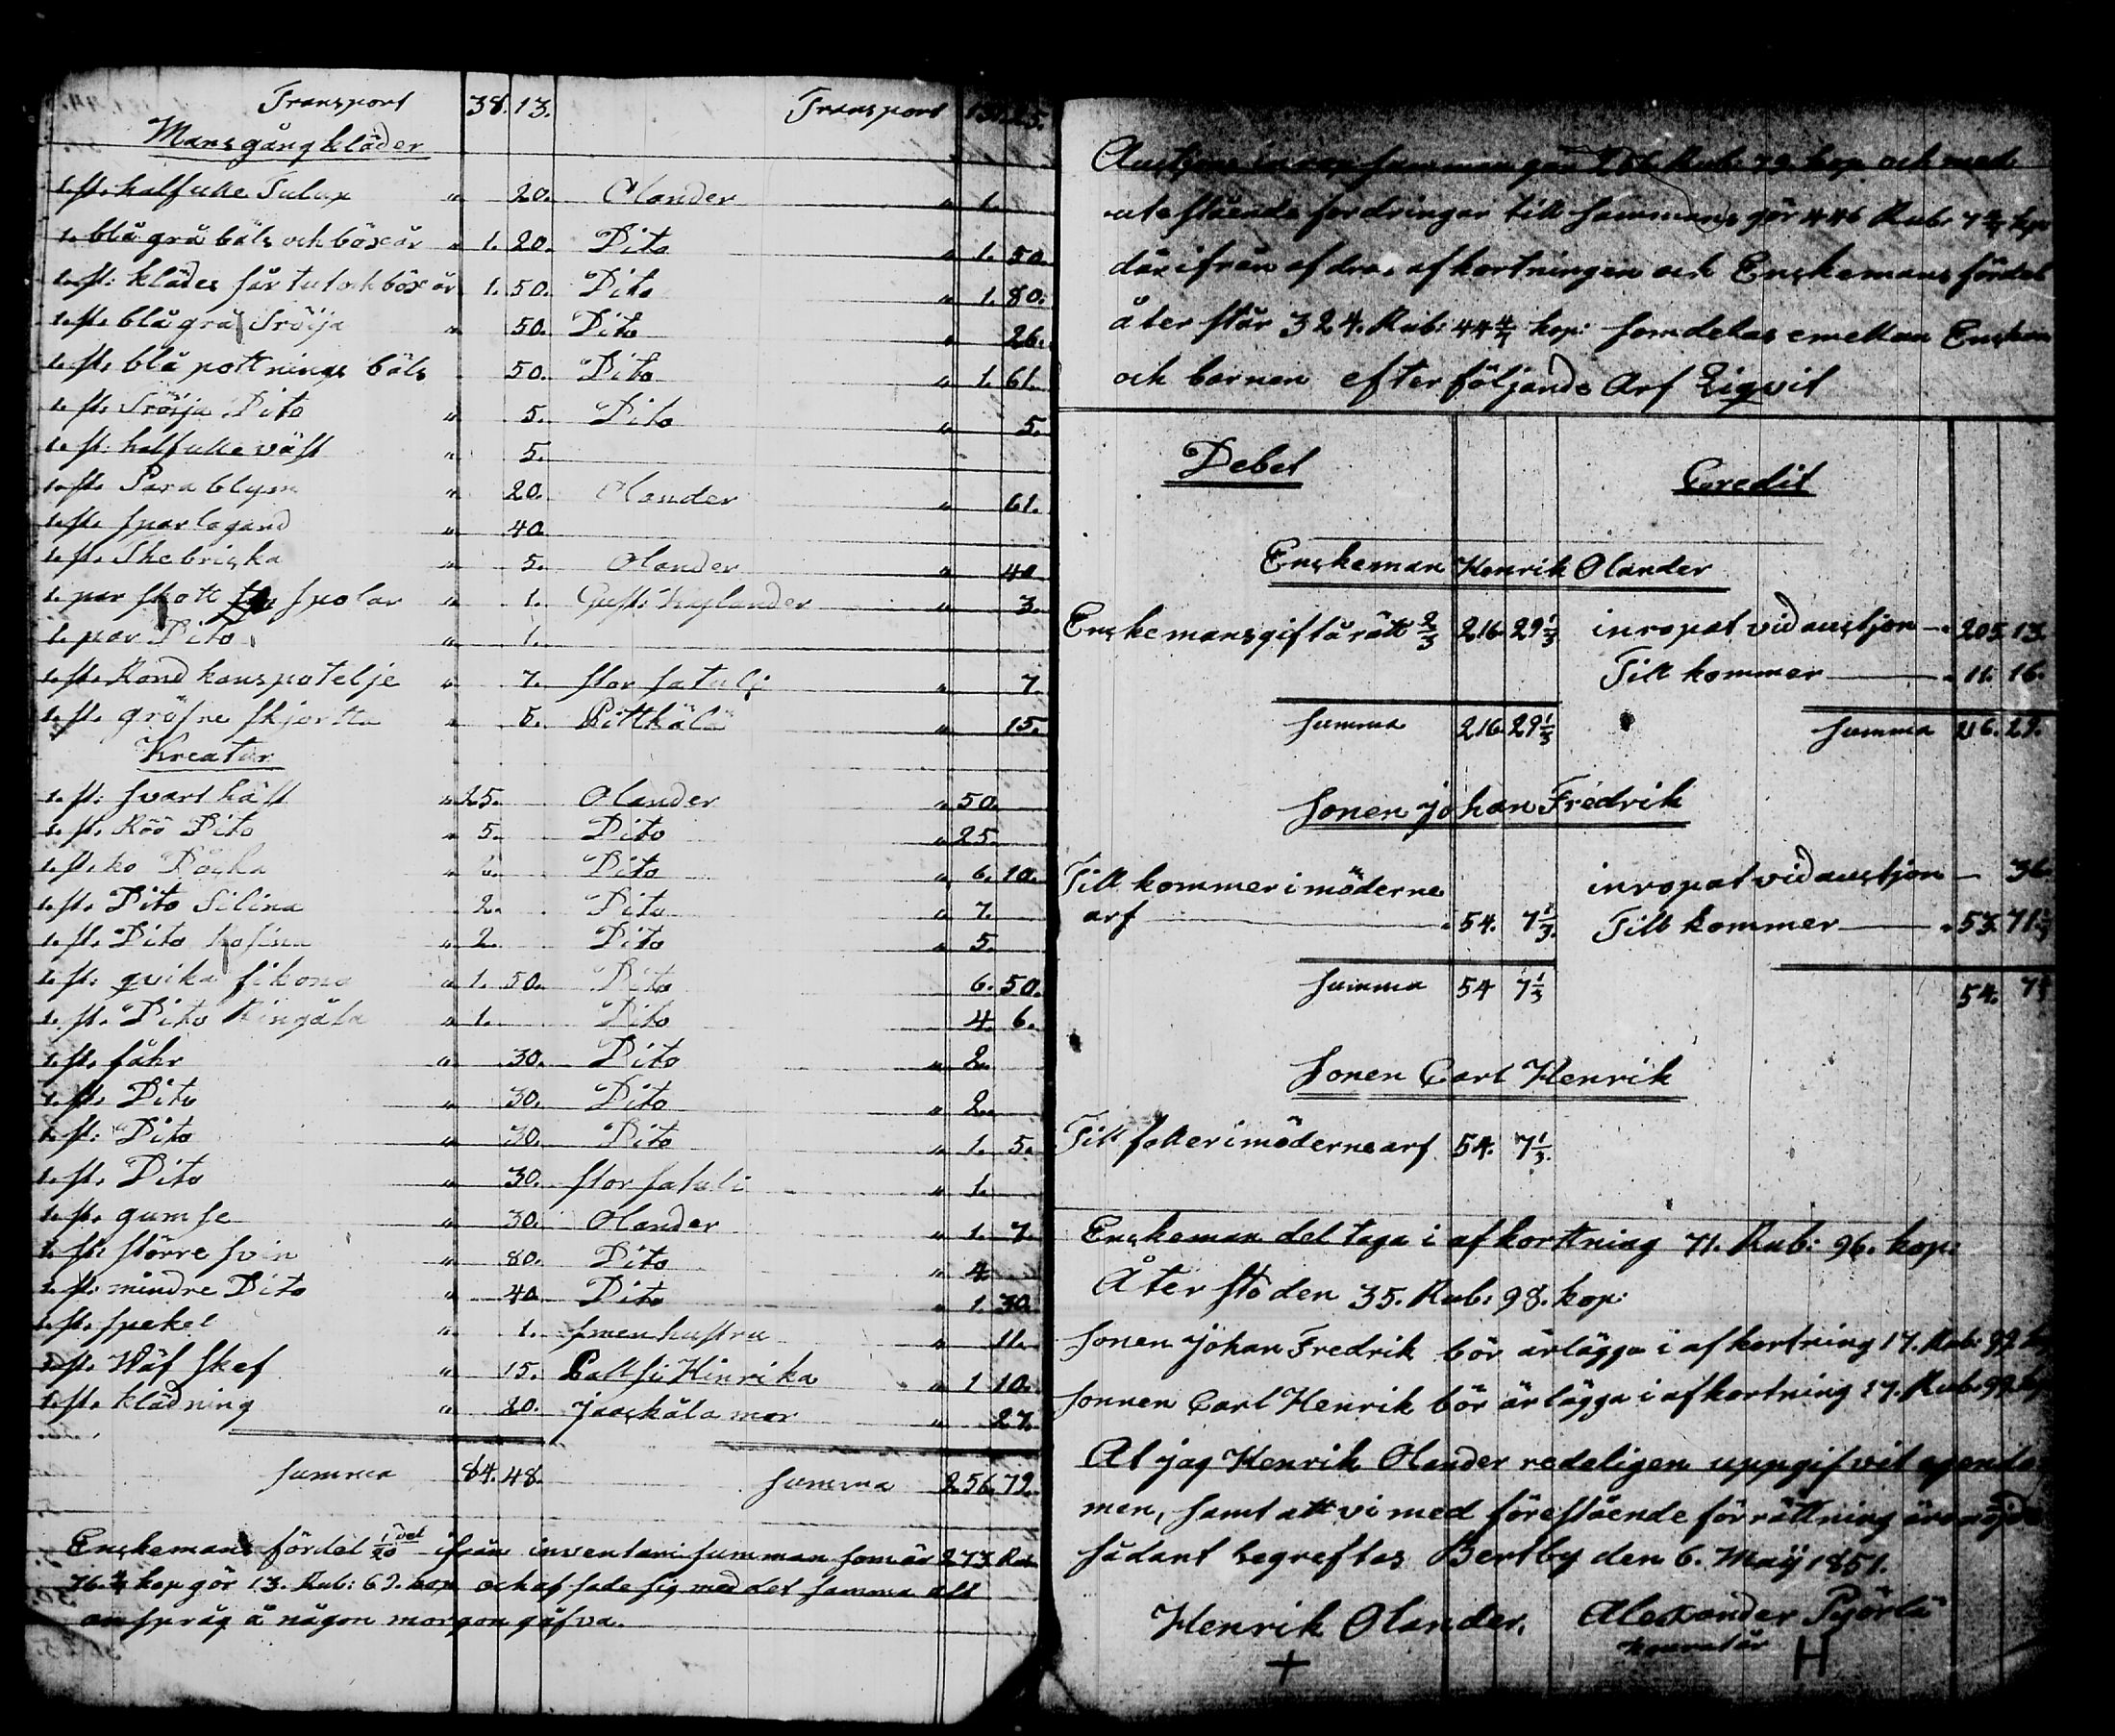 Transport 38. 13. Transport 131. 25.
Mansgångkläder
1. st. halfulle Tulup " 20. Olander " 1.
1. blå grå bäls och böxår " 1. 20. Dito " 1. 50.
1. st: klädes sårtut och böxår 1. 50. Dito " 1. 80.
1. st. blå grå Tröija " 50. Dito " 26.
1. st. blå pottnings bäls 50. Dito " 1. 61.
1. st. Tröija Dito " 5. Dito " 5.
1. st. halfulle väst " 5.
1. st. Parablym " 20. Olander " 61.
1. st. sparlagand " 40.
1. st. Skebricka " 5. Olander " 40
1. par skott spolar " 1. Gust: Näglander " 3.
1. par Dito " 1.
1. st. Rond kanspotelje " 7. stor satuli " 7.
1. st. gröfre skjortta " 5. Pittkälä " 15.
Kreatur
1. st: svart häst " 25. Olander " 50.
1. st. Röö Dito " 5. Dito " 25.
1. st. ko Dito " 6. 10.
1. st. Dito Silina 2. Dito " 7.
1. st. Dito " 2. Dito " 5.
1. st: qvika fikona " 1. 50. Dito 6. 50.
1. st. Dito " 1. Dito 4. 6.
1. st. fåhr " 30. Dito " 2.
1. st. Dito " 30. Dito " 2.
1. st: Dito " 30. Dito " 1. 5.
1. st. Dito " 30. stor satuli " 1.
1. st. gumse " 30. Olander " 1. 7.
1. st. större svin " 80. Dito " 4.
1. st. mindre Dito " 40. Dito " 1. 30.
1. st. spekel " 1. smen hustru " 11.
1. st. Wäf skef " 15. Pallsi Hinrika " 1 10.
1. st. klädning " 20. Jaaskäla mor " 27.
summa 84. 48. summa 256. 79.
Enckemans fördel 1/20 del ifrån inventari summan som är 273. Rub.
76. kop gör 13. Rub: 69. kop och af sade sig med det samma alt
anspråg å någon morgon gåfva.
Auctjons inrop summan gör 256 Rub: 79 kop och med
utestående fordringar till sammans gör 446 Rub. 7 4/7 kop
därifrån afdras afkortningen och Enckemans fördel
återstår 324. Rub: 44 4/7 kop: som delas emellan Enckem
och barnen efter följande Arf Liqvit
Debet Credit
Enckeman Henrik Olander
Enckemansgiftårätt 2/3 216 29 1/3 inropat vid auctjon " 205. 13.
Till kommer " 11. 16.
summa 216 29 1/3 summa 216. 29.
Sonen Johan Fredrik
Till kommer i möderne inropat vid auctjon 36.
arf " 54. 7 1/3. Till kommer " 53. 71 1/3
summa 54 7 1/3 54. 7 1/3
Sonen Carl Henrik
Till faller i möderne arf 54. 7 1/3.
Enckeman del taga i afkorttning 71. Rub: 96. kop:
Åter stoden 35. Rub: 98. kop:
Sonen Johan Fredrik bör ärlägga i afkortning 17. Rub: 99. kop
Sonnen Carl Henrik bör ärlägga i afkortning 17. Rub: 99. kop
At jag Henrik Olander redeligen uppgifvit egendo
men, samt att vi med förestående förrättning äro nöjde
sådant begreftas Bertby den 6. Maij 1851.
Henrik Olander. Alexander Pyörlä
kouratår
+ H